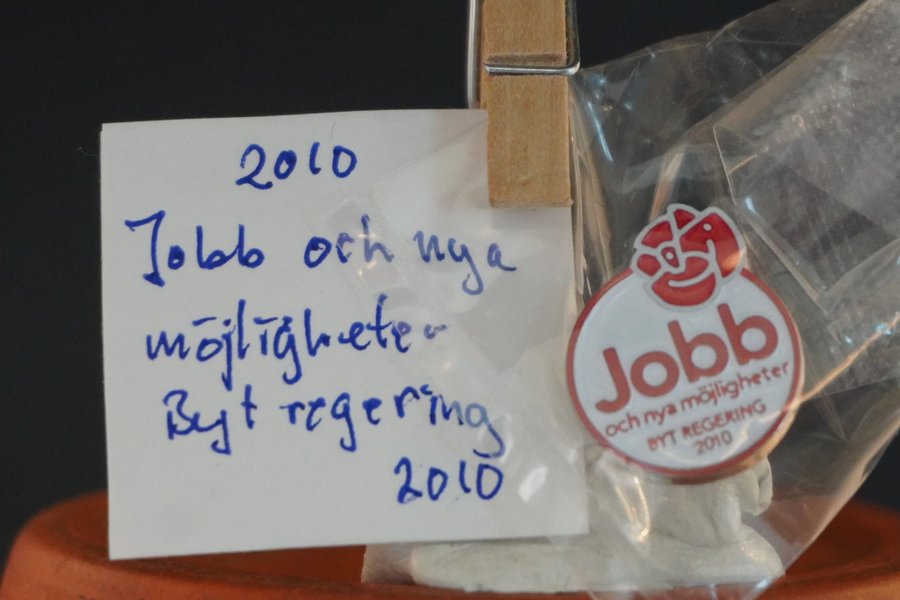 2010
Jobb och nya
möjligheter
Byt regering
2010
Jobb
och nya möjligheter
BYT REGERING
2010